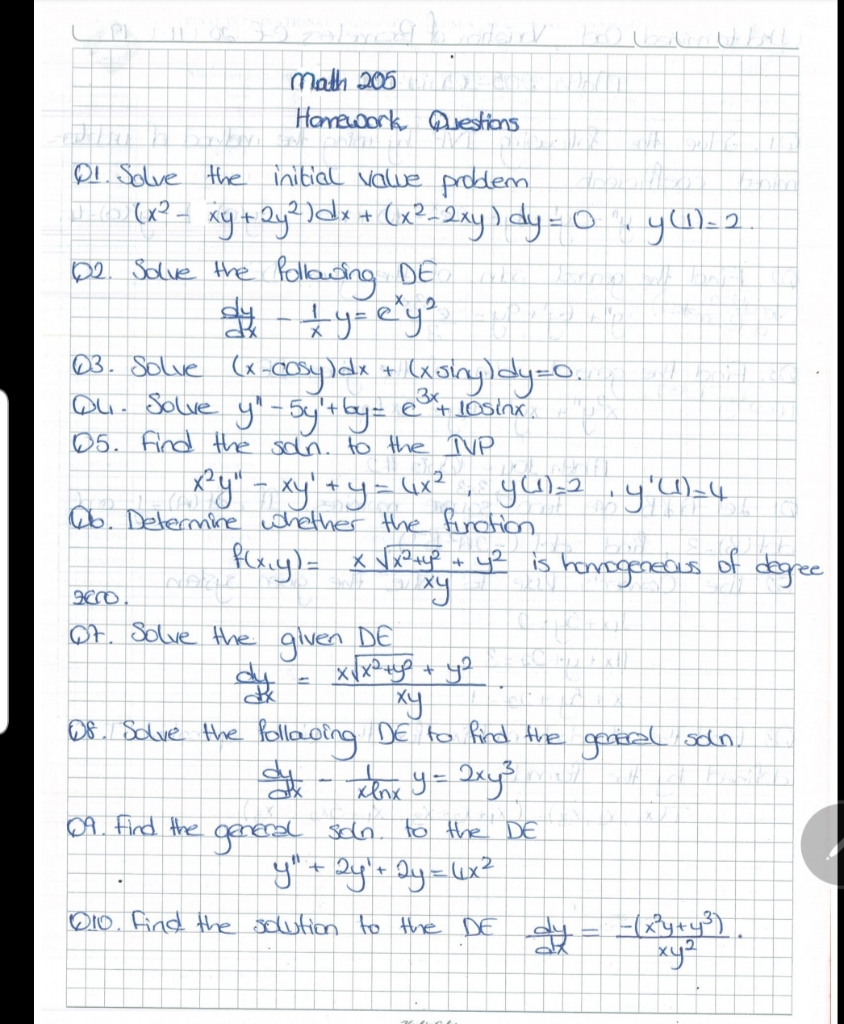 Math 205
Homework Questions
Q1. Solve the initial value problem
(x² - xy + 2y²)dx + (x² - 2xy) dy = 0 , y(1)=2.
Q2. Solve the following DE
dy/dx - 1/x y = eˣy²
Q3. Solve (x-cosy)dx + (xsiny)dy=0.
Q4. Solve y" - 5y' + 6y = e³ˣ + 10sinx.
Q5. Find the soln. to the IVP
x²y" - xy' + y = 4x² , y(1)=2 , y'(1)=4
Q6. Determine whether the function
f(x,y) = (x √(x²+y²) + y²)/(xy) is homogeneous of degree
zero.
Q7. Solve the given DE
dy/dx = (x√(x²+y²) + y²)/(xy)
Q8. Solve the following DE to find the general soln.
dy/dx - 1/(xlnx) y = 2xy³
Q9. Find the general soln. to the DE
y" + 2y' + 2y = 4x²
Q10. Find the solution to the DE dy/dx = -(x²y+y³)/(xy²) .